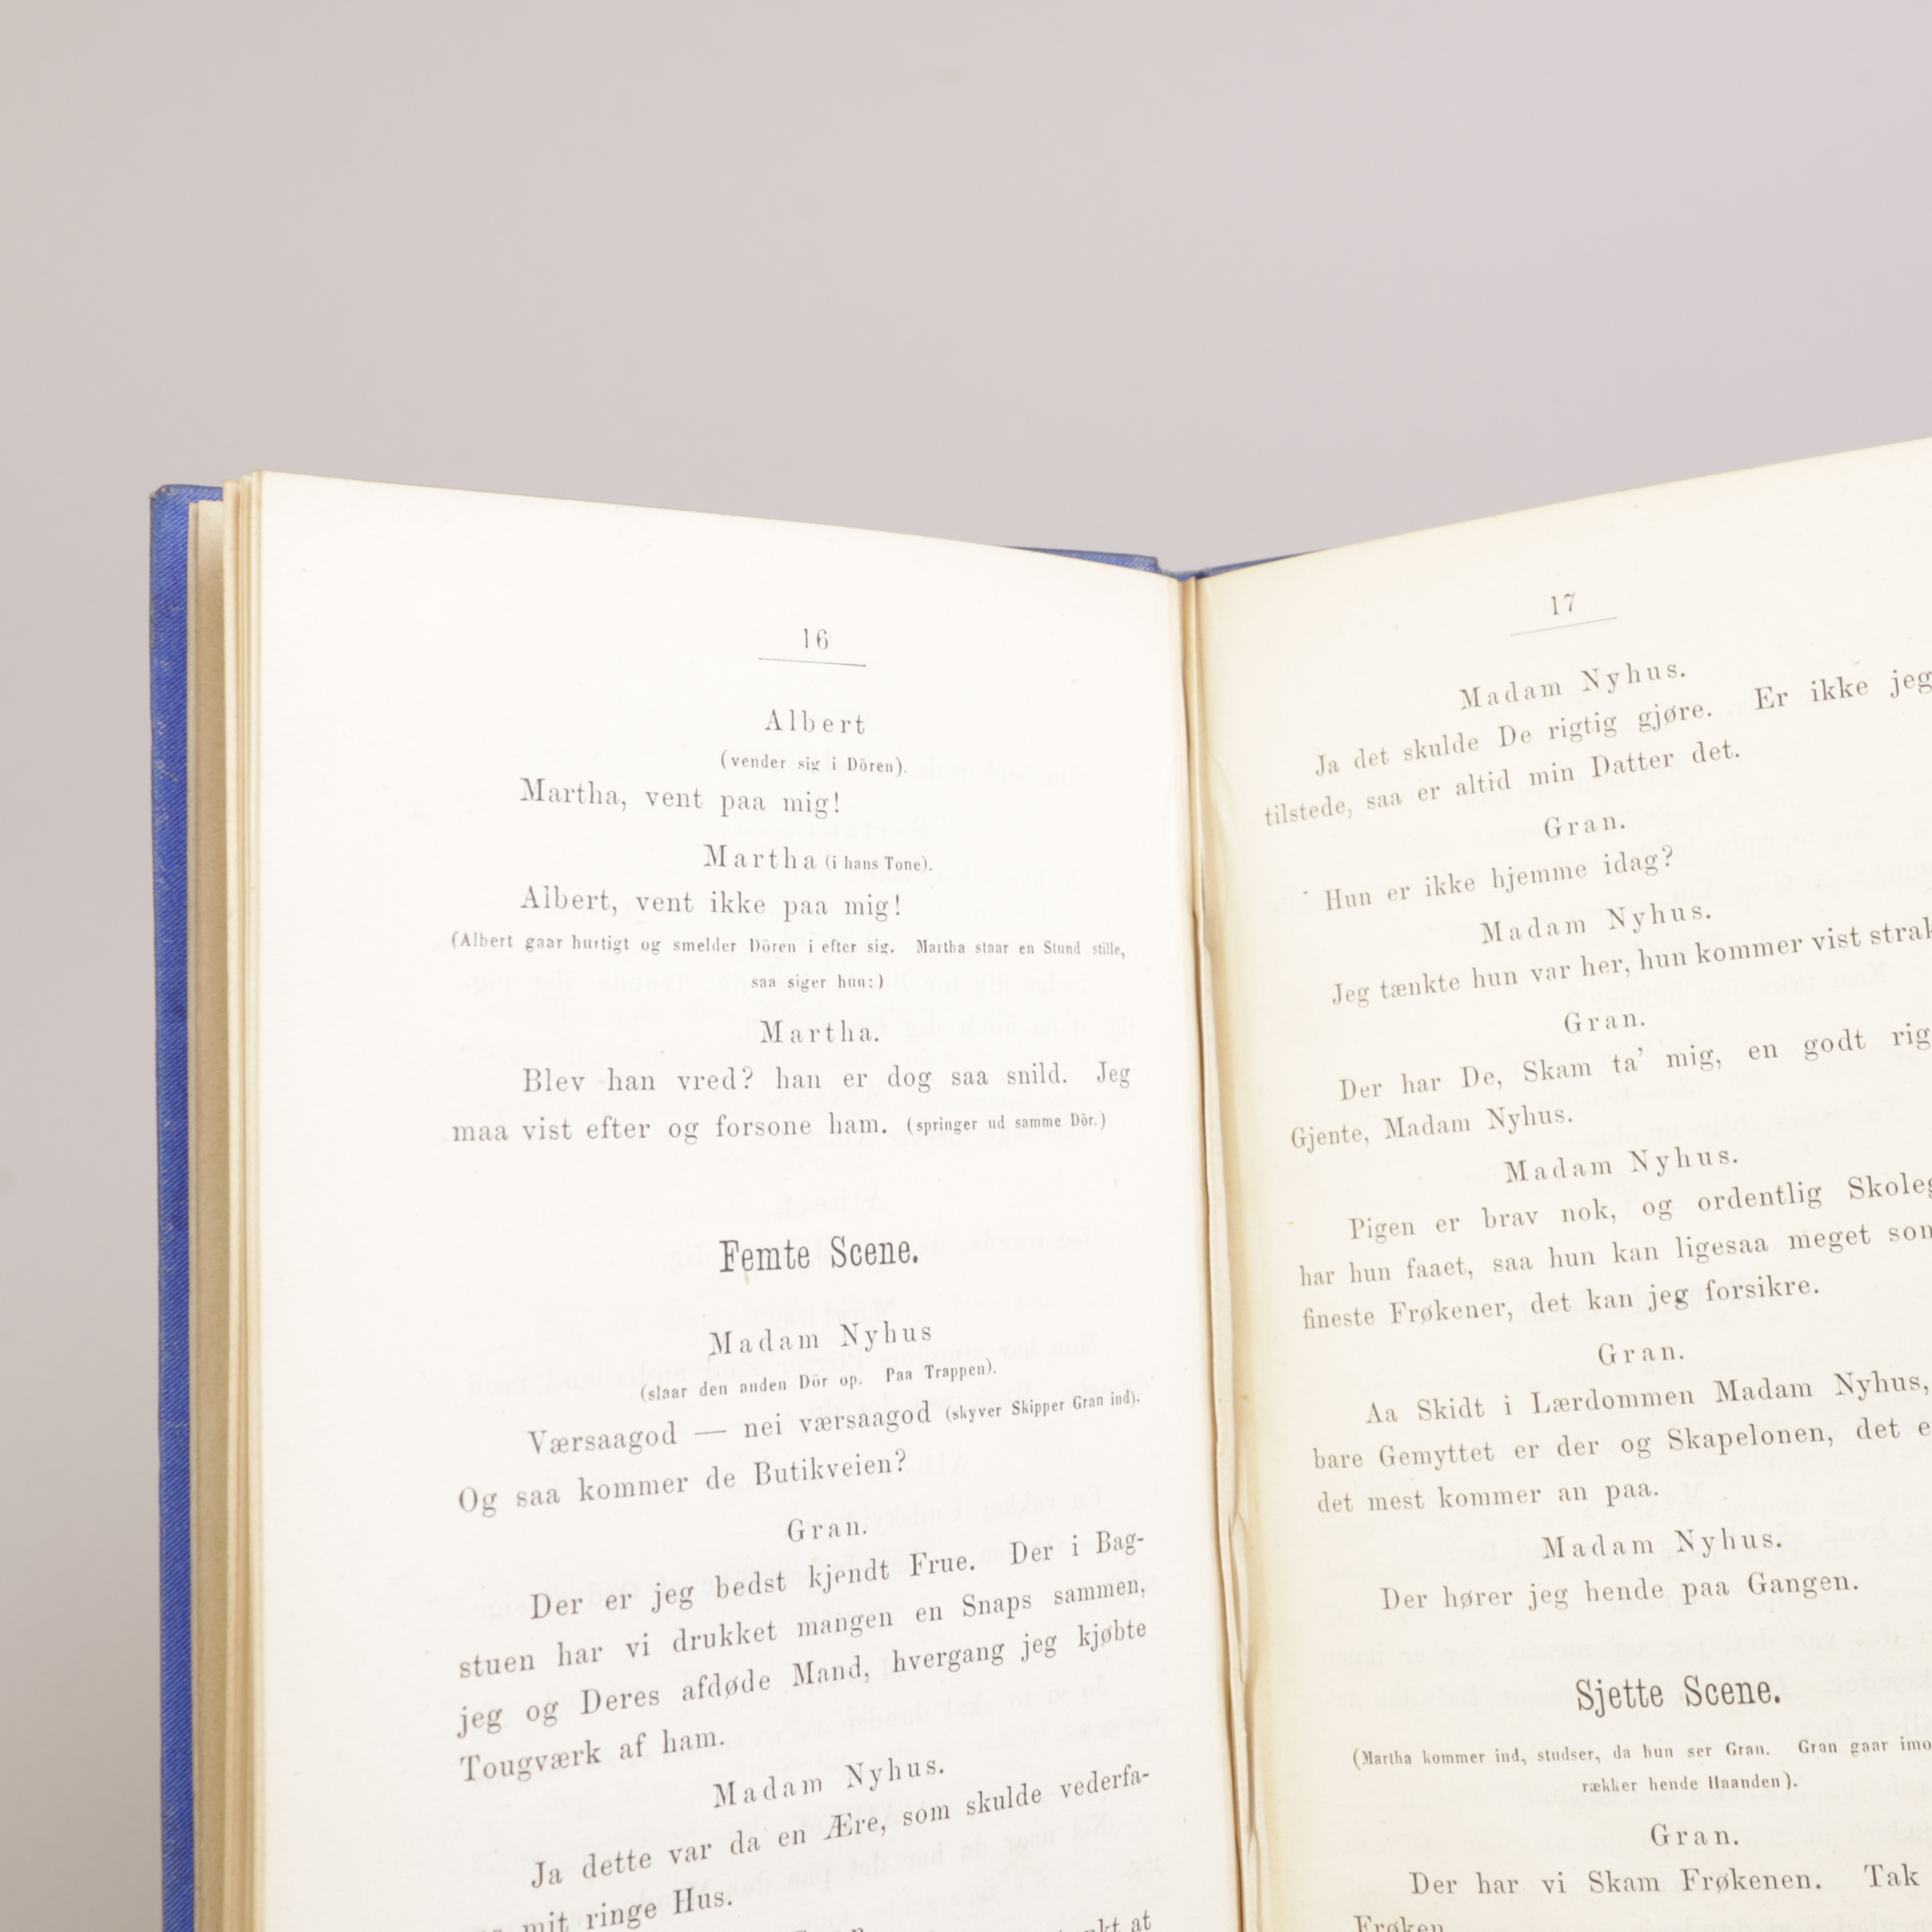 16
Albert
(vender sig i Dören).
Martha, vent paa mig!
Martha (i hans Tone).
Albert, vent ikke paa mig!
(Albert gaar hurtigt og smelder Dören i efter sig. Martha staar en Stund stille,
saa siger hun:)
Martha.
Blev han vred? han er dog saa snild. Jeg
maa vist efter og forsone ham. (springer ud samme Dör.)
Femte Scene.
Madam Nyhus
(slaar den anden Dör op. Paa Trappen).
Værsaagod — nei værsaagod (skyver Skipper Gran ind).
Og saa kommer de Butikveien?
Gran.
Der er jeg bedst kjendt Frue. Der i Bag-
stuen har vi drukket mangen en Snaps sammen,
jeg og Deres afdøde Mand, hvergang jeg kjøbte
Tougværk af ham.
Madam Nyhus.
Ja dette var da en Ære, som skulde vederfa-
mit ringe Hus.
at
17
Madam Nyhus.
Ja det skulde De rigtig gjøre. Er ikke jeg
tilstede, saa er altid min Datter det.
Gran.
Hun er ikke hjemme idag?
Madam Nyhus.
Jeg tænkte hun var her, hun kommer vist
Gran.
Der har De, Skam ta' mig, en godt
Gjente, Madam Nyhus.
Madam Nyhus.
Pigen er brav nok, og ordentlig
har hun faaet, saa hun kan ligesaa meget som
fineste Frøkener, det kan jeg forsikre.
Gran.
Aa Skidt i Lærdommen Madam Nyhus,
bare Gemyttet er der og Skapelonen, det
det mest kommer an paa.
Madam Nyhus.
Der hører jeg hende paa Gangen.
Sjette Scene.
(Martha kommer ind, studser, da hun ser Gran. Gran gaar
rækker hende Haanden).
Gran.
Der har vi Skam Frøkenen. Tak
Frøken